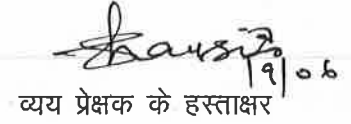 |9|06
व्यय प्रेक्षक के हस्ताक्षर